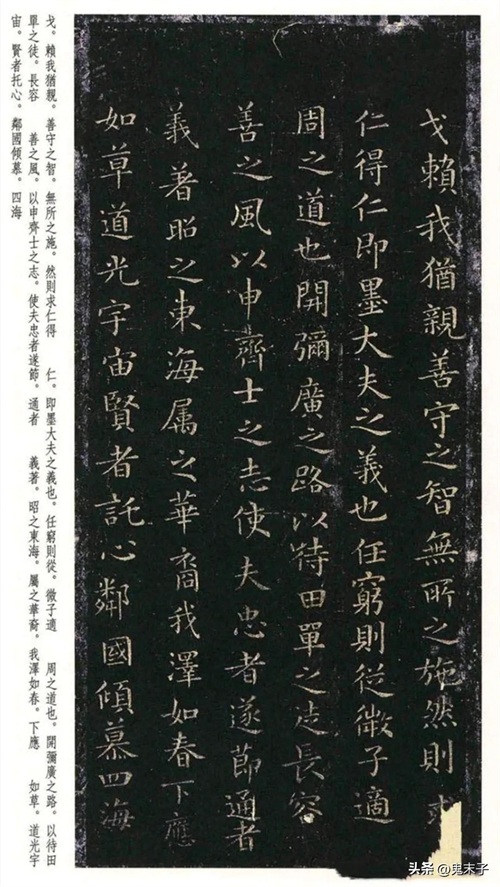 戈賴我猶親善守之智無所之施然則求
仁得仁即墨大夫之義也任窮則從微子適
周之道也開彌廣之路以待田單之徒長容
善之風以申齊士之志使夫忠者遂節通者
義著昭之東海属之華裔我澤如春下應
如草道光宇宙賢者託心鄰國傾慕四海
戈。賴我猶親。善守之智。無所之施。然則求仁得　仁。即墨大夫之義也。任窮則從。微子適　周之道也。開彌廣之路。以待田
單之徒。長容　善之風。以申齊士之志。使夫忠者遂節。通者　義著。昭之東海。屬之華裔。我澤如春。下應　如草。道光宇
宙。賢者托心。鄰國傾慕。四海
头条 @鬼末子